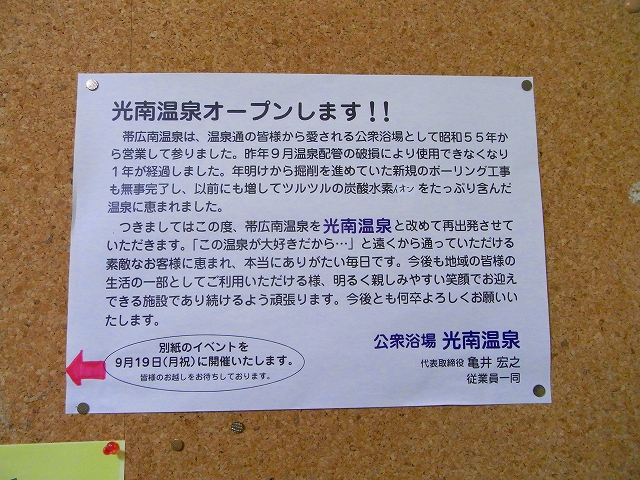 光南温泉オープンします!!
帯広南温泉は、温泉通の皆様から愛される公衆浴場として昭和55年か
ら営業して参りました。昨年9月温泉配管の破損により使用できなくなり
1年が経過しました。年明けから掘削を進めていた新規のボーリング工事
も無事完了し、以前にも増してツルツルの炭酸水素イオンをたっぷり含んだ
温泉に恵まれました。
つきましてはこの度、帯広南温泉を光南温泉と改めて再出発させて
いただきます。「この温泉が大好きだから…」と遠くから通っていただける
素敵なお客様に恵まれ、本当にありがたい毎日です。今後も地域の皆様の
生活の一部としてご利用いただける様、明るく親しみやすい笑顔でお迎え
できる施設であり続けるよう頑張ります。今後とも何卒よろしくお願いい
たします。
別紙のイベントを
9月19日(月祝)に開催いたします。
皆様のお越しをお待ちしております。
公衆浴場 光南温泉
代表取締役 亀井 宏之
従業員一同